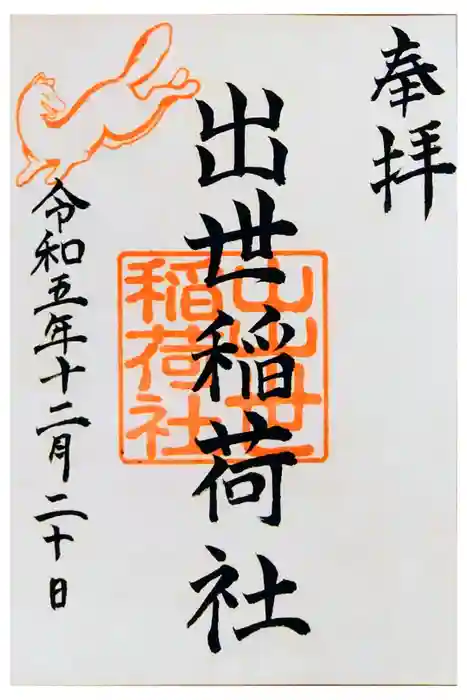 奉拝
出世稲荷社
山出世
稲荷社
令和五年十二月二十日